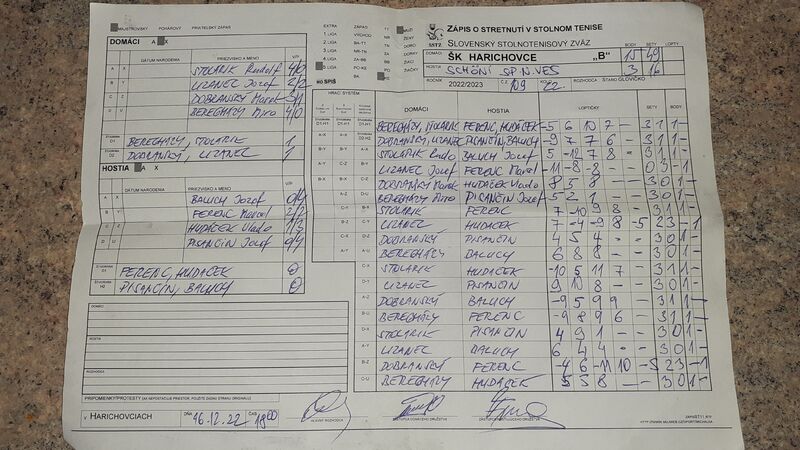 MAJSTROVSKÝ POHÁROVÝ PRIATEĽSKÝ ZÁPAS
DOMÁCI A X
DÁTUM NARODENIA PRIEZVISKO A MENO V/P
A X STOLARIK Rudolf 4/0
B Y LIZANEC Jozef 2/2
C Z DOBRANSKÝ Marek 3/1
D U BEREGHÁZY Miro 4/0
ŠTVORHRA D1 BEREGHÁZY, STOLARIK 1
ŠTVORHRA D2 DOBRANSKÝ, LIZANEC 1
HOSTIA A X
DÁTUM NARODENIA PRIEZVISKO A MENO V/P
A X BALUCH Jozef 0/4
B Y FERENC Marcel 2/2
C Z HUDAČEK Vlado 1/3
D U PISANČIN Jozef 0/4
ŠTVORHRA H1 FERENC, HUDAČEK 0
ŠTVORHRA H2 PISANČIN, BALUCH 0
DOMÁCI
HOSTIA
ROZHODCA
PRIPOMIENKY/PROTESTY
V HARICHOVCIACH DŇA 16.12.22 ČAS 18:00
HLAVNÝ ROZHODCA
EXTRA ZÁPAD
1 LIGA VÝCHOD
2 LIGA BA-TT
3 LIGA NR-TN
4 LIGA ZA-BB
5 LIGA PO-KE
HO SPIŠ
SSTZ
ZÁPIS O STRETNUTÍ V STOLNOM TENISE
SLOVENSKÝ STOLNOTENISOVÝ ZVÄZ
BODY SETY LOPTY
ŠK HARICHOVCE „B" 15 - 49
HOSTIA SCHÖNI SP.N.VES 3 - 16
ROČNÍK 2022/2023 Č.Z. 109 ROZHODCA STANO GLOVIČKO
HRACÍ SYSTÉM DOMÁCI HOSTIA LOPTIČKY SETY BODY
BEREGHÁZY, STOLARIK FERENC, HUDAČEK -5 6 10 7 - 3 1 1 -
DOBRANSKÝ, LIZANEC PISANČIN, BALUCH -9 7 7 6 - 3 1 1 -
STOLARIK Rudo BALUCH Jozef 5 -12 7 8 - 3 1 1 -
LIZANEC Jozef FERENC Marcel -11 -8 -8 - - 0 3 - 1
DOBRANSKÝ Marek HUDAČEK Vlado 8 5 8 - - 3 0 1 -
BEREGHÁZY Miro PISANČIN Jozef 5 2 1 - - 3 0 1 -
STOLARIK FERENC 7 -10 9 8 - 3 1 1 -
LIZANEC HUDAČEK 7 -4 -9 8 -5 2 3 - 1
DOBRANSKÝ PISANČIN 4 5 4 - - 3 0 1 -
BEREGHÁZY BALUCH 6 8 8 - - 3 0 1 -
STOLARIK HUDAČEK -10 5 11 7 - 3 1 1 -
LIZANEC PISANČIN 9 10 8 - - 3 0 1 -
DOBRANSKÝ BALUCH -9 5 9 9 - 3 1 1 -
BEREGHÁZY FERENC -9 8 9 6 - 3 1 1 -
STOLARIK PISANČIN 4 9 1 - - 3 0 1 -
LIZANEC BALUCH 6 4 4 - - 3 0 1 -
DOBRANSKÝ FERENC -4 6 -11 10 -5 2 3 - 1
BEREGHÁZY HUDAČEK 5 5 8 - - 3 0 1 -